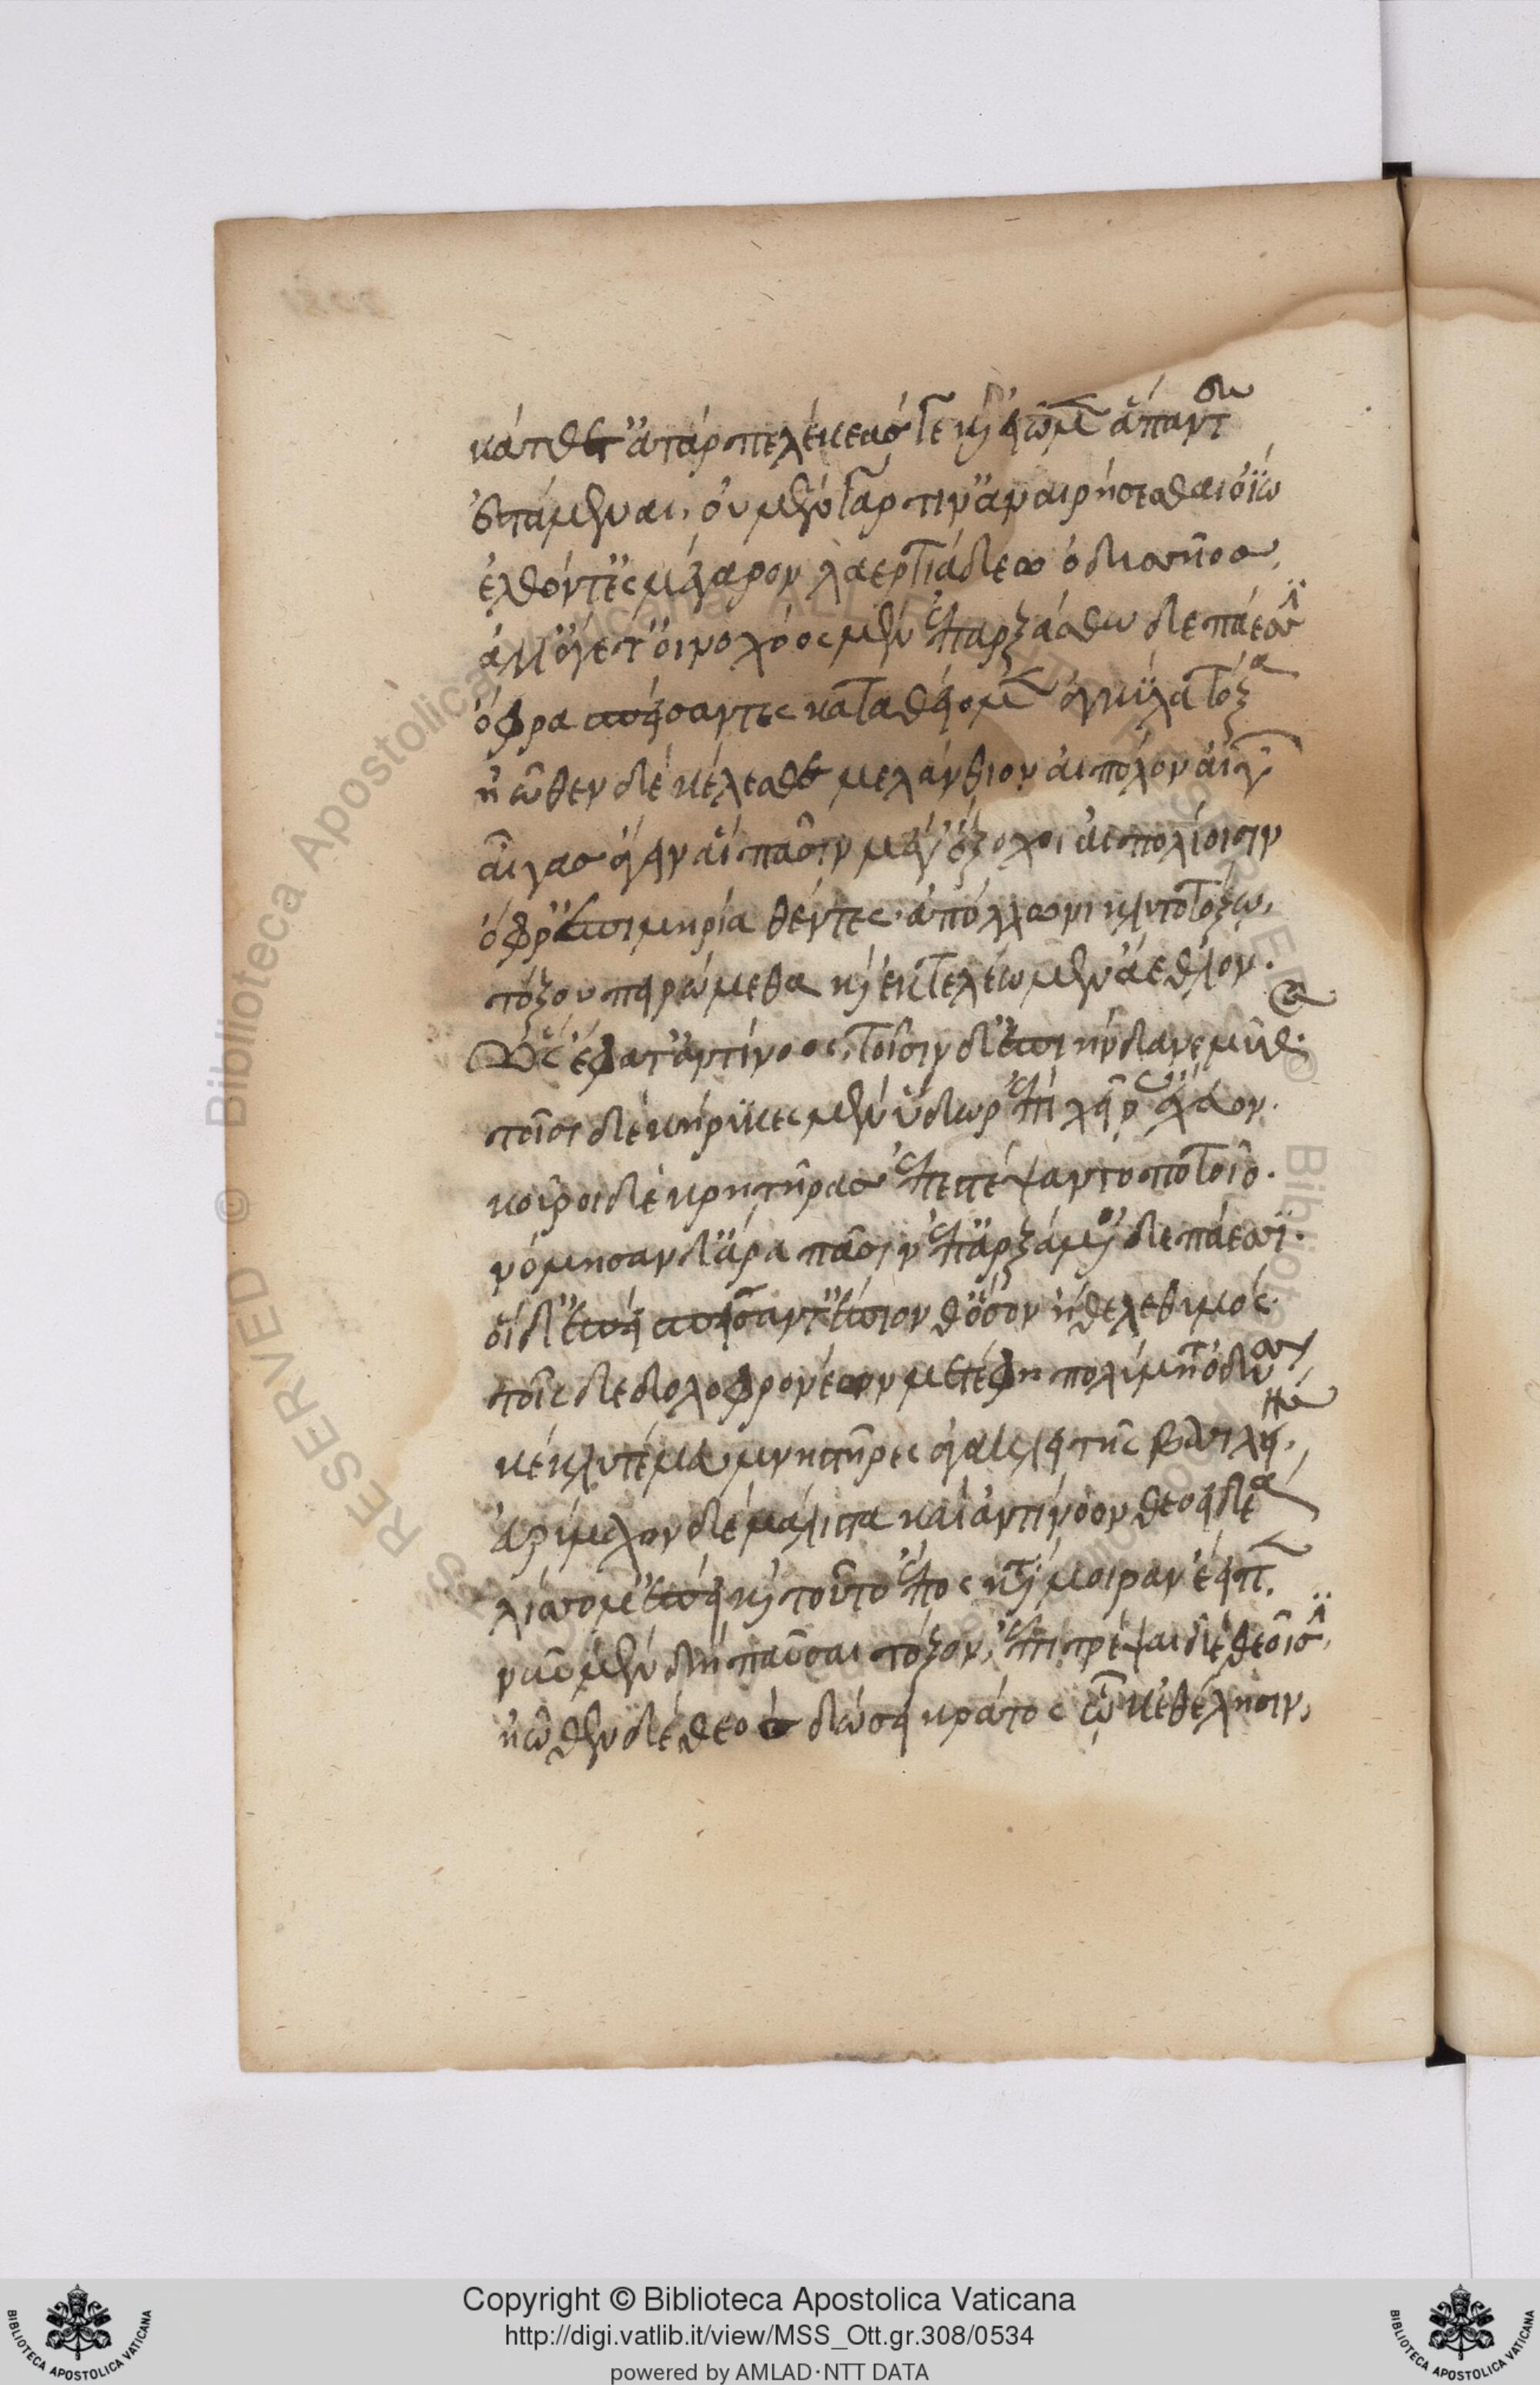 κάτθετ' ἀτὰρ πελέκεάς γε καὶ εἰῶμεν ἅπαντας
ἑστάμεναι, οὐ μὲν γάρ τιν' ἀναιρήσεσθαι ὀΐω
ἐλθόντ' ἐς μέγαρον λαερτιάδεω ὀδυσῆος,
ἀλλ' ἄγετ' οἰνοχόος μὲν ἐπαρξάσθω δεπάεσσιν
ὄφρα σπείσαντες καταθείομεν ἀγκύλα τόξα
ἠῶθεν δὲ κέλεσθε μελάνθιον αἰπόλον αἰγῶν
αἶγας ἄγειν αἳ πᾶσιν μέγ' ἔξοχοι αἰπολίοισιν
ὄφρ' ἐπὶ μηρία θέντες ἀπόλλωνι κλυτοτόξω,
τόξου πειρώμεθα καὶ ἐκτελέωμεν ἄεθλον.
Ὣς ἔφατ' ἀντίνοος, τοῖσιν δ' ἐπιήνδανε μῦθος.
τοῖσι δὲ κήρυκες μὲν ὕδωρ ἐπὶ χεῖρας ἔχευον.
κοῦροι δὲ κρητῆρας ἐπεστέψαντο ποτοῖο.
νώμησαν δ' ἄρα πᾶσιν ἐπαρξάμενοι δεπάεσσι.
οἱ δ' ἐπεὶ σπεῖσάν τ' ἔπιον θ' ὅσον ἤθελε θυμός.
τοῖς δὲ δολοφρονέων μετέφη πολύμητις ὀδυσσεύς
κέκλυτέ μευ μνηστῆρες ἀγακλειτῆς βασιλείης,
εὐρύμαχον δὲ μάλιστα καὶ ἀντίνοον θεοειδέα
λίσσομ' ἐπεὶ καὶ τοῦτο ἔπος κατὰ μοῖραν ἔειπεν,
νῦν μὲν δὴ παῦσαι τόξον, ἐπιτρέψαι δὲ θεοῖσιν,
ἠῶθεν δὲ θεὸς δώσει κράτος ὧ κ' ἐθέλησιν,
Copyright © Biblioteca Apostolica Vaticana
http://digi.vatlib.it/view/MSS_Ott.gr.308/0534
powered by AMLAD·NTT DATA